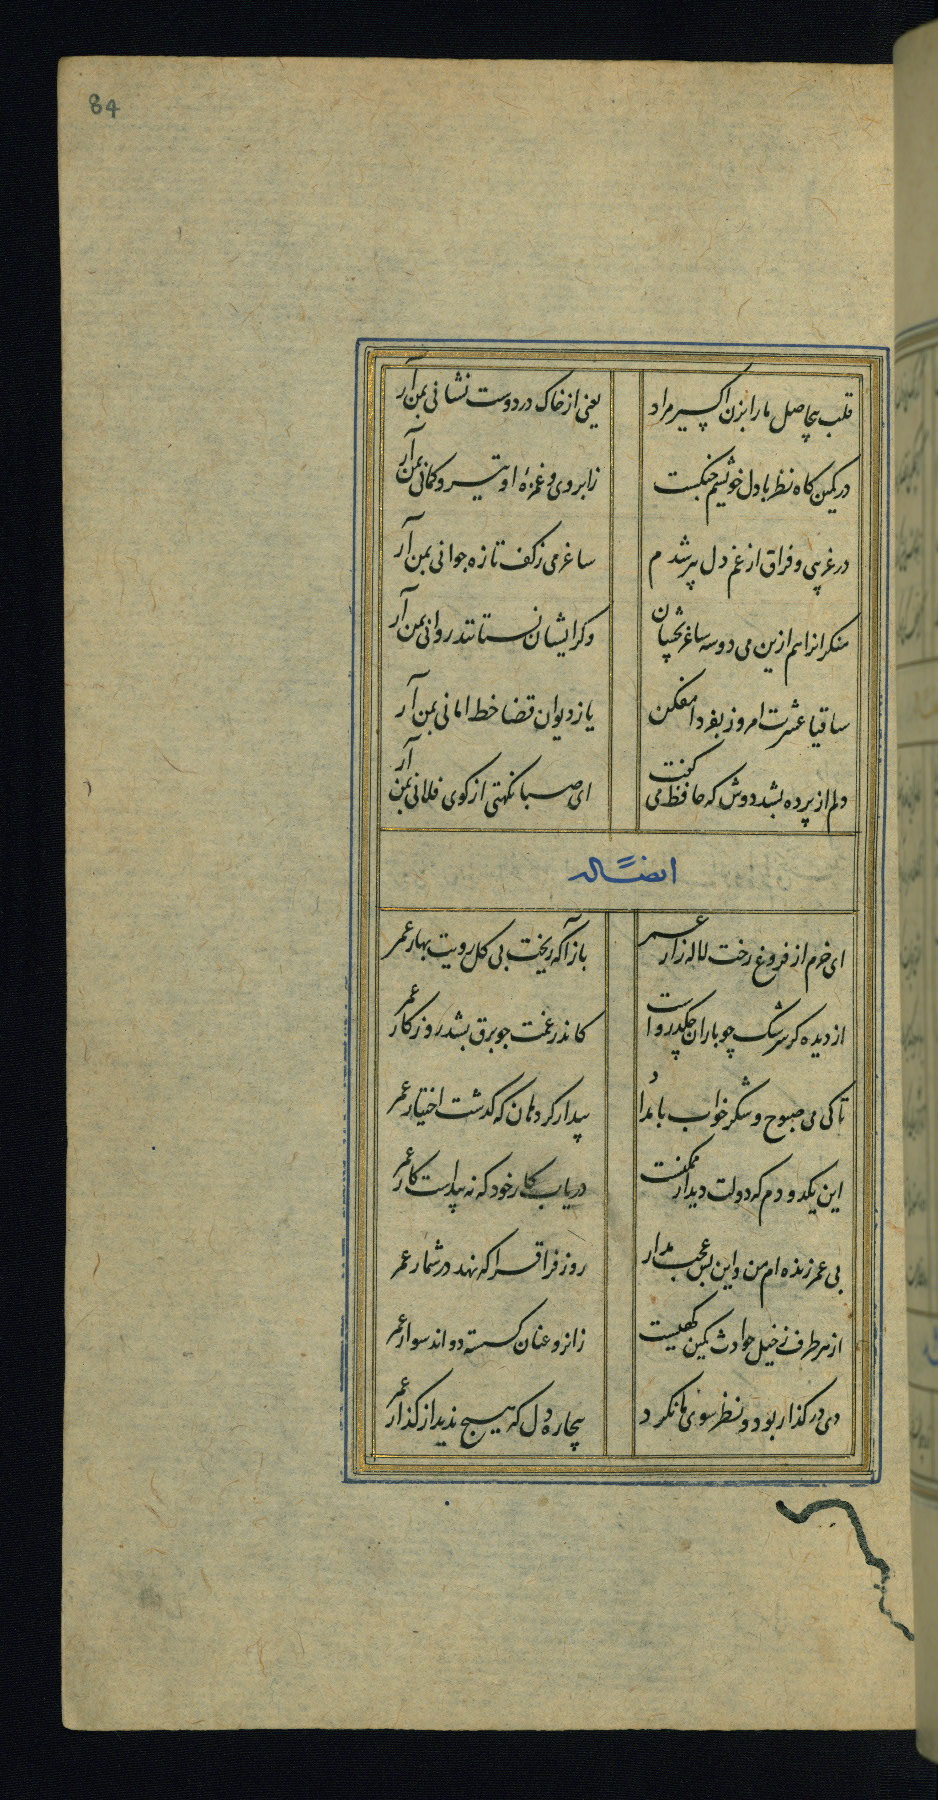 84
قلب بیحاصل ما را بزن اکسیر مراد
یعنی از خاک در دوست نشانی بمن آر
در کمین کاه نظر با دل خویشم جنکست
ز ابروی و غمزهٔ او تیر و کمانی بمن آر
در غریبی و فراق از غم دل پیر شدم
ساغر می ز کف تازه جوانی بمن آر
منکرانرا هم ازین می دو سه ساغر بچشان
وکر ایشان نستانند روانی بمن آر
ساقیا عشرت امروز بفردا مفکن
یا ز دیوان قضا خط امانی بمن آر
دلم از پرده بشد دوش که حافظ می کفت
ای صبا نکهتی از کوی فلانی بمن آر
ایضاً له
ای خرم از فروغ رخت لاله زار عمر
باز آ که ریخت بی کل رویت بهار عمر
از دیده کر سرشک چو باران چکد رواست
کاندر غمت چو برق بشد روزکار عمر
تا کی می صبوح و شکر خواب بامداد
بیدار کرد هان که کذشت اختیار عمر
این یکدو دم که دولت دیدار ممکنست
دریاب کار خود که نه پیداست کار عمر
بی عمر زنده ام من و این بس عجب مدار
روز فراق را که نهد در شمار عمر
از هر طرف ز خیل حوادث کمین کهیست
زانرو عنان کسسته دواند سوار عمر
دی در کذار بود و نظر سوی ما نکرد
بیچاره دل که هیچ ندید از کذار عمر